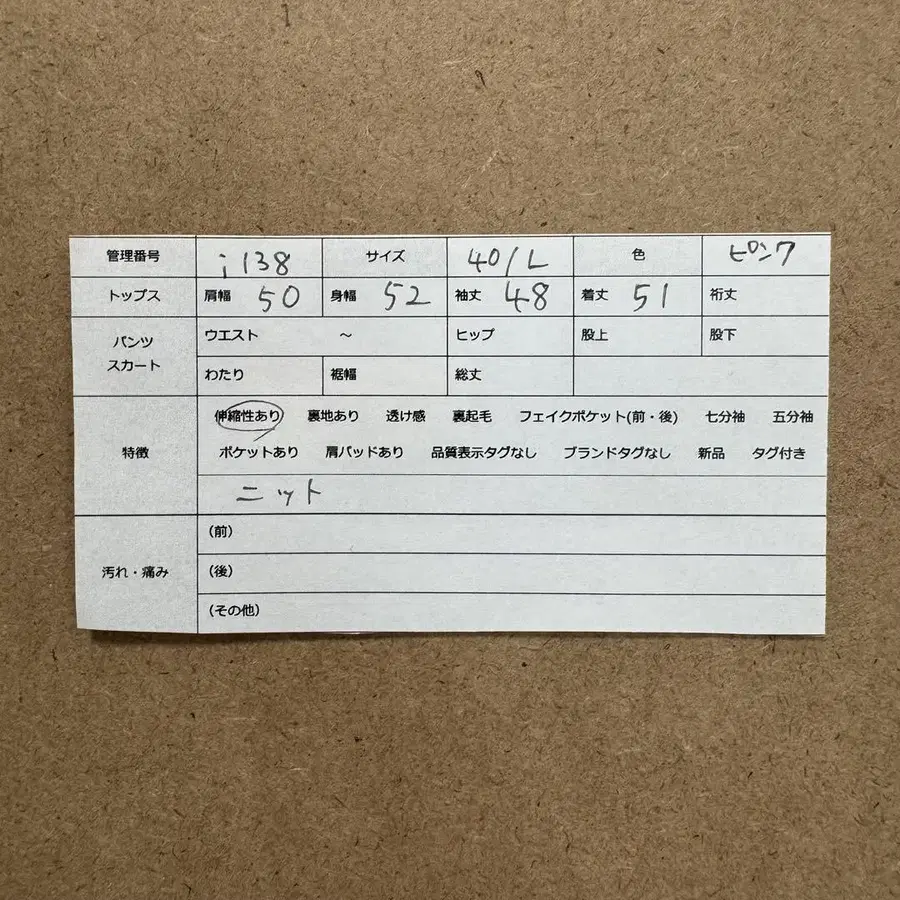 管理番号 i138 サイズ 40/L 色 ピンク
トップス 肩幅 50 身幅 52 袖丈 48 着丈 51 裄丈
パンツ スカート ウエスト ～ ヒップ 股上 股下
わたり 裾幅 総丈
特徴 伸縮性あり 裏地あり 透け感 裏起毛 フェイクポケット(前・後) 七分袖 五分袖
ポケットあり 肩パッドあり 品質表示タグなし ブランドタグなし 新品 タグ付き
ニット
汚れ・痛み (前)
(後)
(その他)